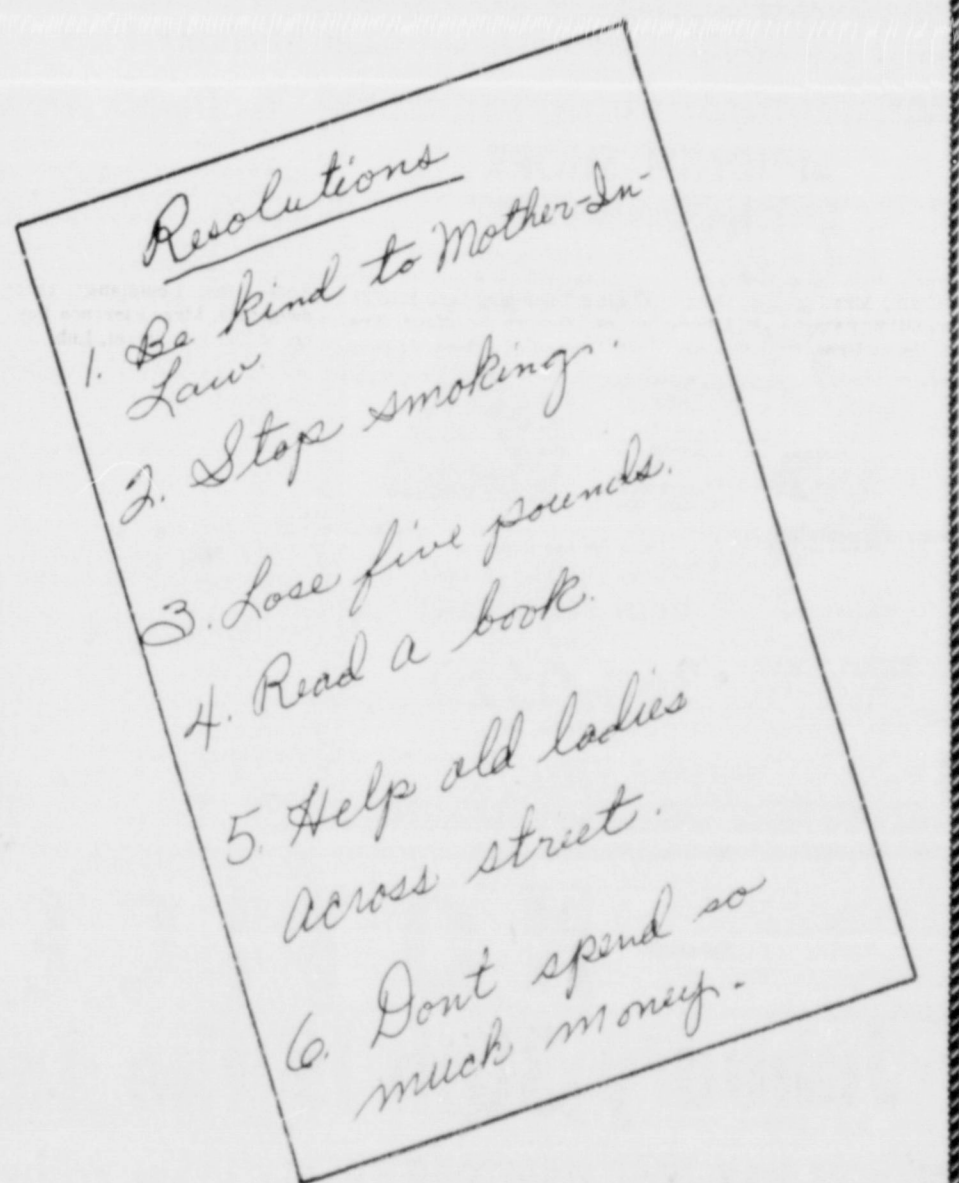 Resolutions
1. Be kind to Mother-In-
Law.
2. Stop smoking.
3. Lose five pounds.
4. Read a book.
5. Help old ladies
across street.
6. Dont spend so
much money.